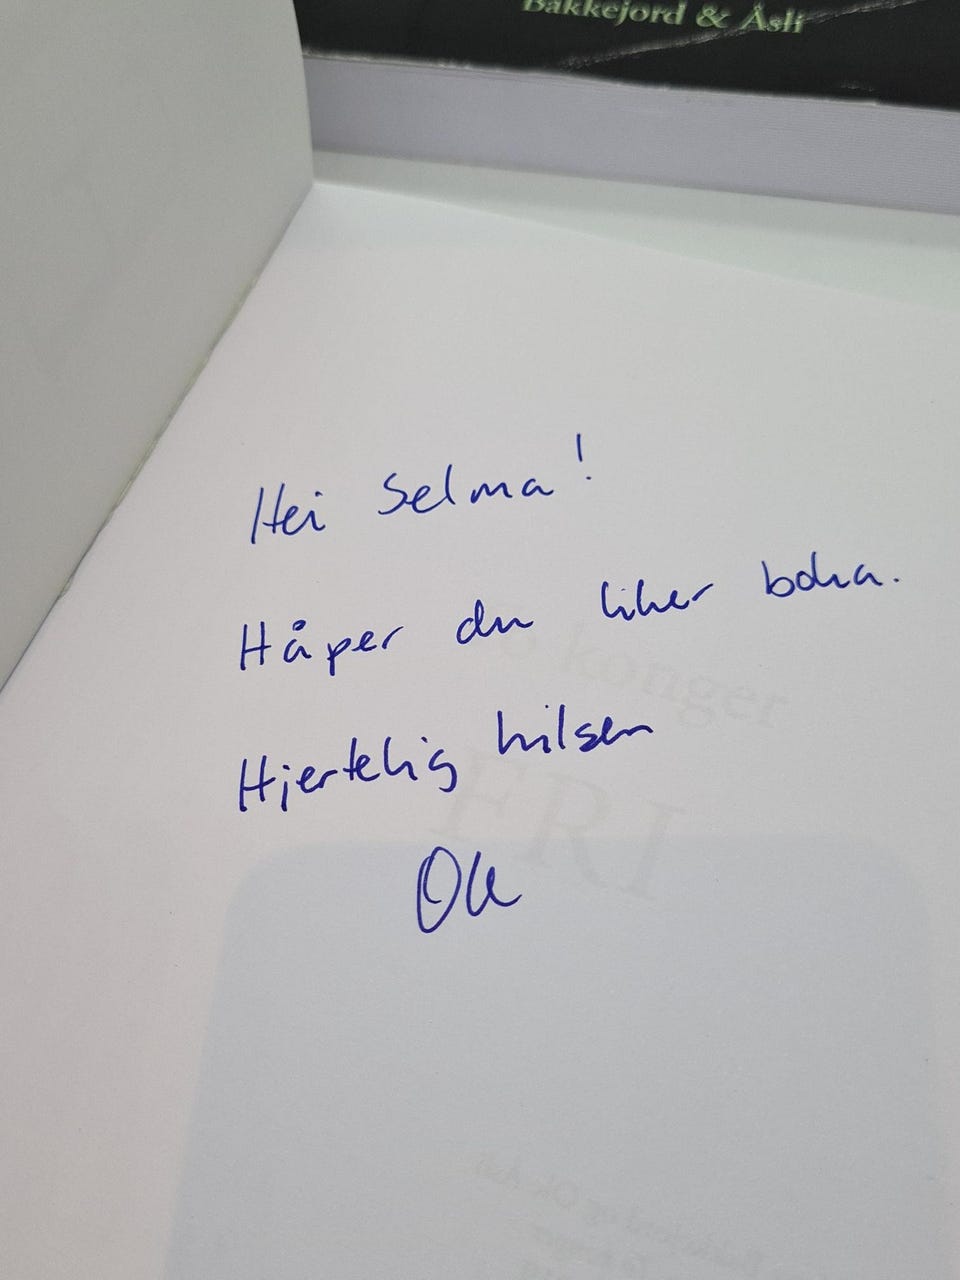 Bakkejord & Åsli
Hei Selma!
Håper du liker boka.
konger
FRI
Hjertelig hilsen